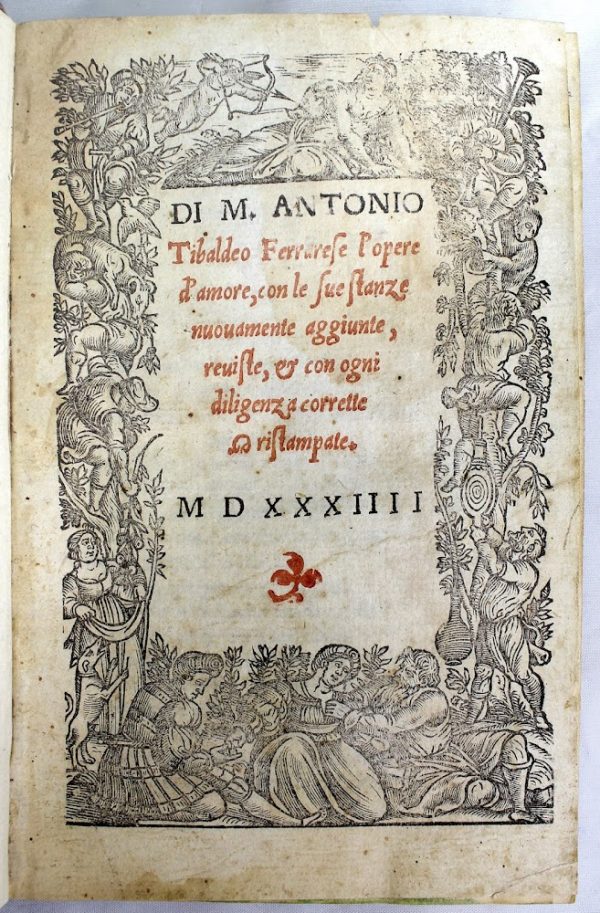 DI M. ANTONIO
Tibaldeo Ferrarese l'opere
d'amore, con le sue stanze
nuouamente aggiunte,
reuiste, & con ogni
diligenza corrette
& ristampate.
MDXXXIIII